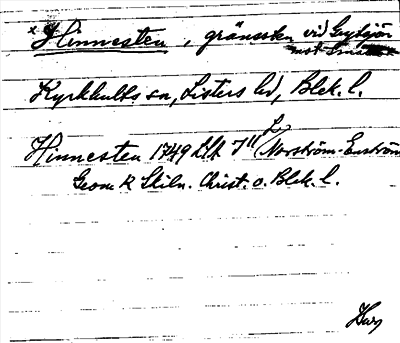 x Hinnesten, gränssten vid Grytsjön
mot
Kyrkhults sn, Listers hd, Blek. l.
Hinnesten 1749 Lfk I" (Norström-Enström
Geom k Skiln. Christ. o. Blek. l.